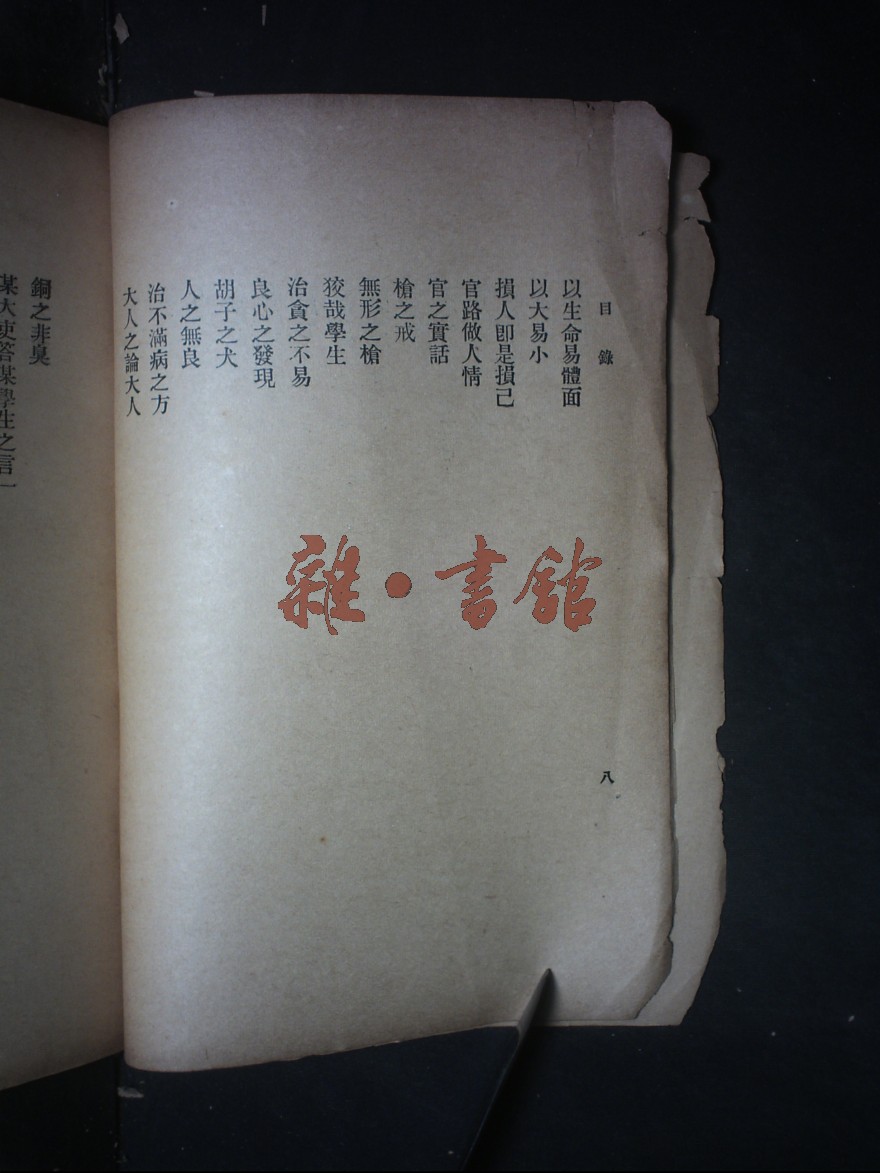 目錄
八
以生命易體面
以大易小
損人卽是損己
官路做人情
官之實話
槍之戒
無形之槍
狡哉學生
治貪之不易
良心之發現
胡子之犬
人之無良
治不滿病之方
大人之論大人
銅之非臭
某大吏答某學生之言一
雜·書館